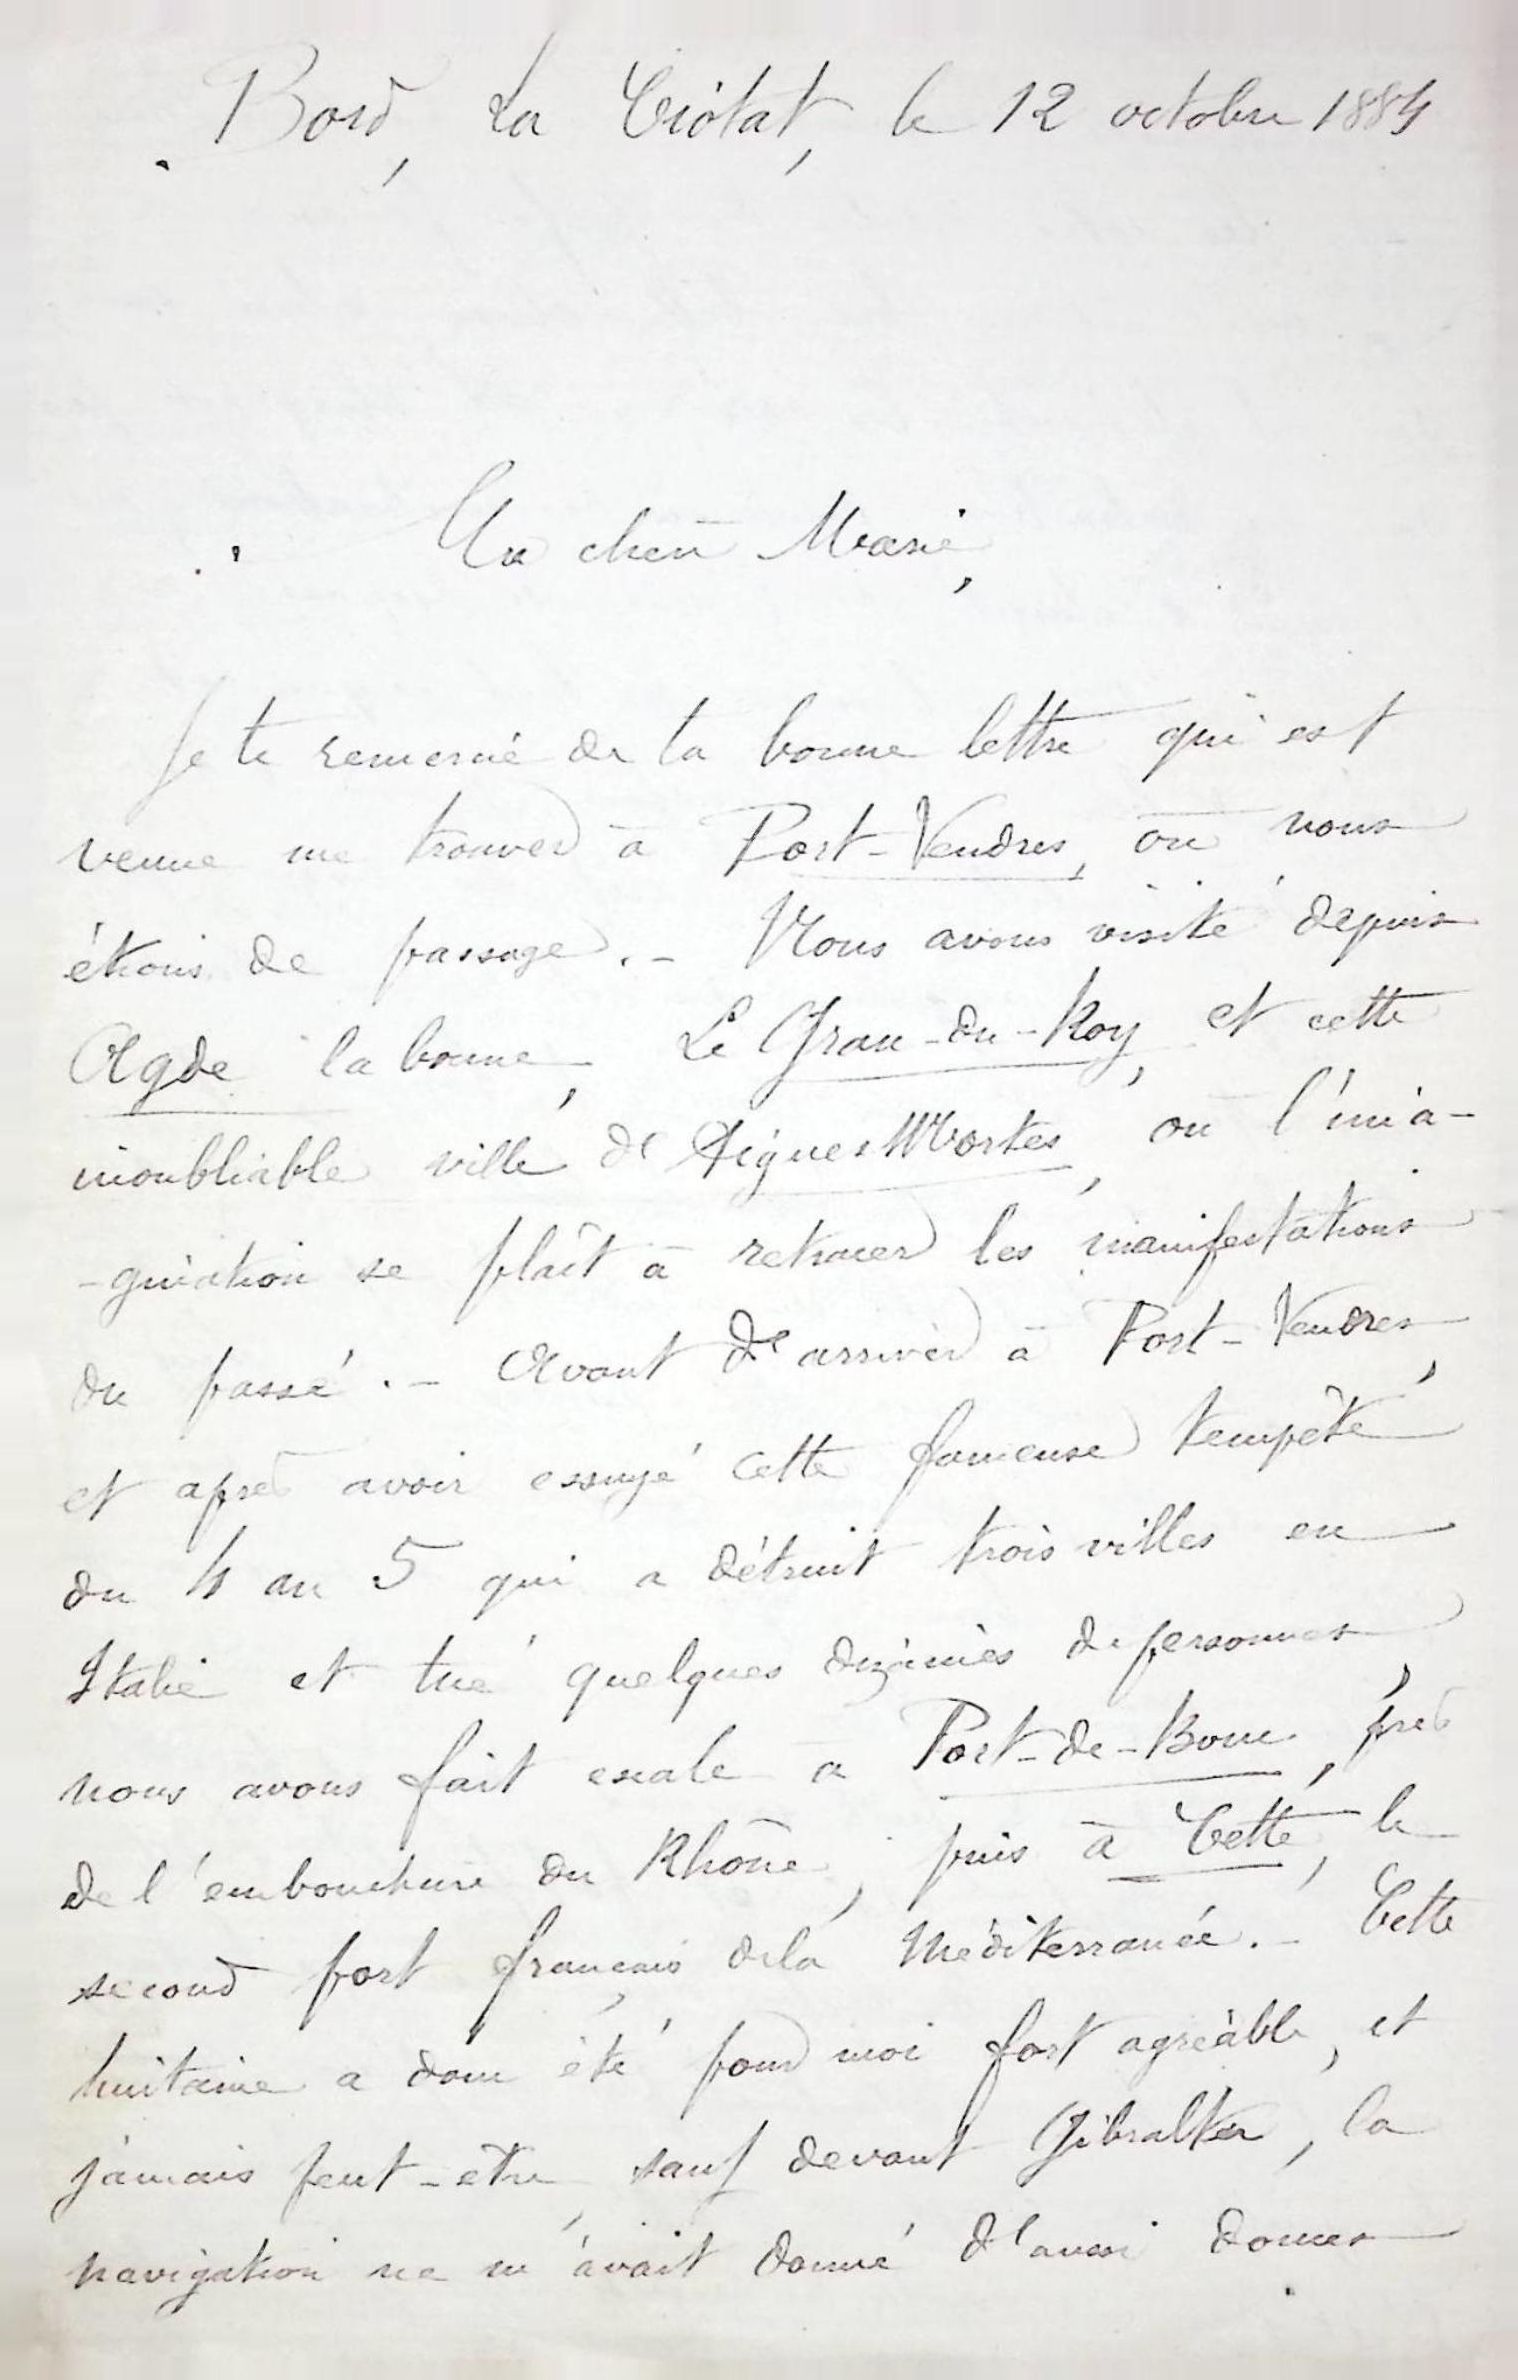 Bord, La Ciotat, le 12 octobre 1884
Ma chère Marie,
Je te remercie de ta bonne lettre qui est
venue me trouver à Port-Vendres, où nous
étions de passage. - Nous avons visité depuis
Agde la bonne, Le Grau-du-Roy, et cette
inoubliable ville d'Aigues Mortes, où l'ima-
-gination se plaît à retracer les manifestations
du passé. - Avant d'arriver à Port-Vendres,
et après avoir essuyé cette fameuse tempête
du 4 au 5 qui a détruit trois villes en
Italie et tué quelques dizaines de personnes,
nous avons fait escale à Port-de-Bouc, près
de l'embouchure du Rhône, puis à Cette, le
second port français de la Méditerranée. - Cette
huitaine a donc été pour moi fort agréable, et
jamais peut-être, sauf devant Gibraltar, la
navigation ne m'avait donné d'aussi douces